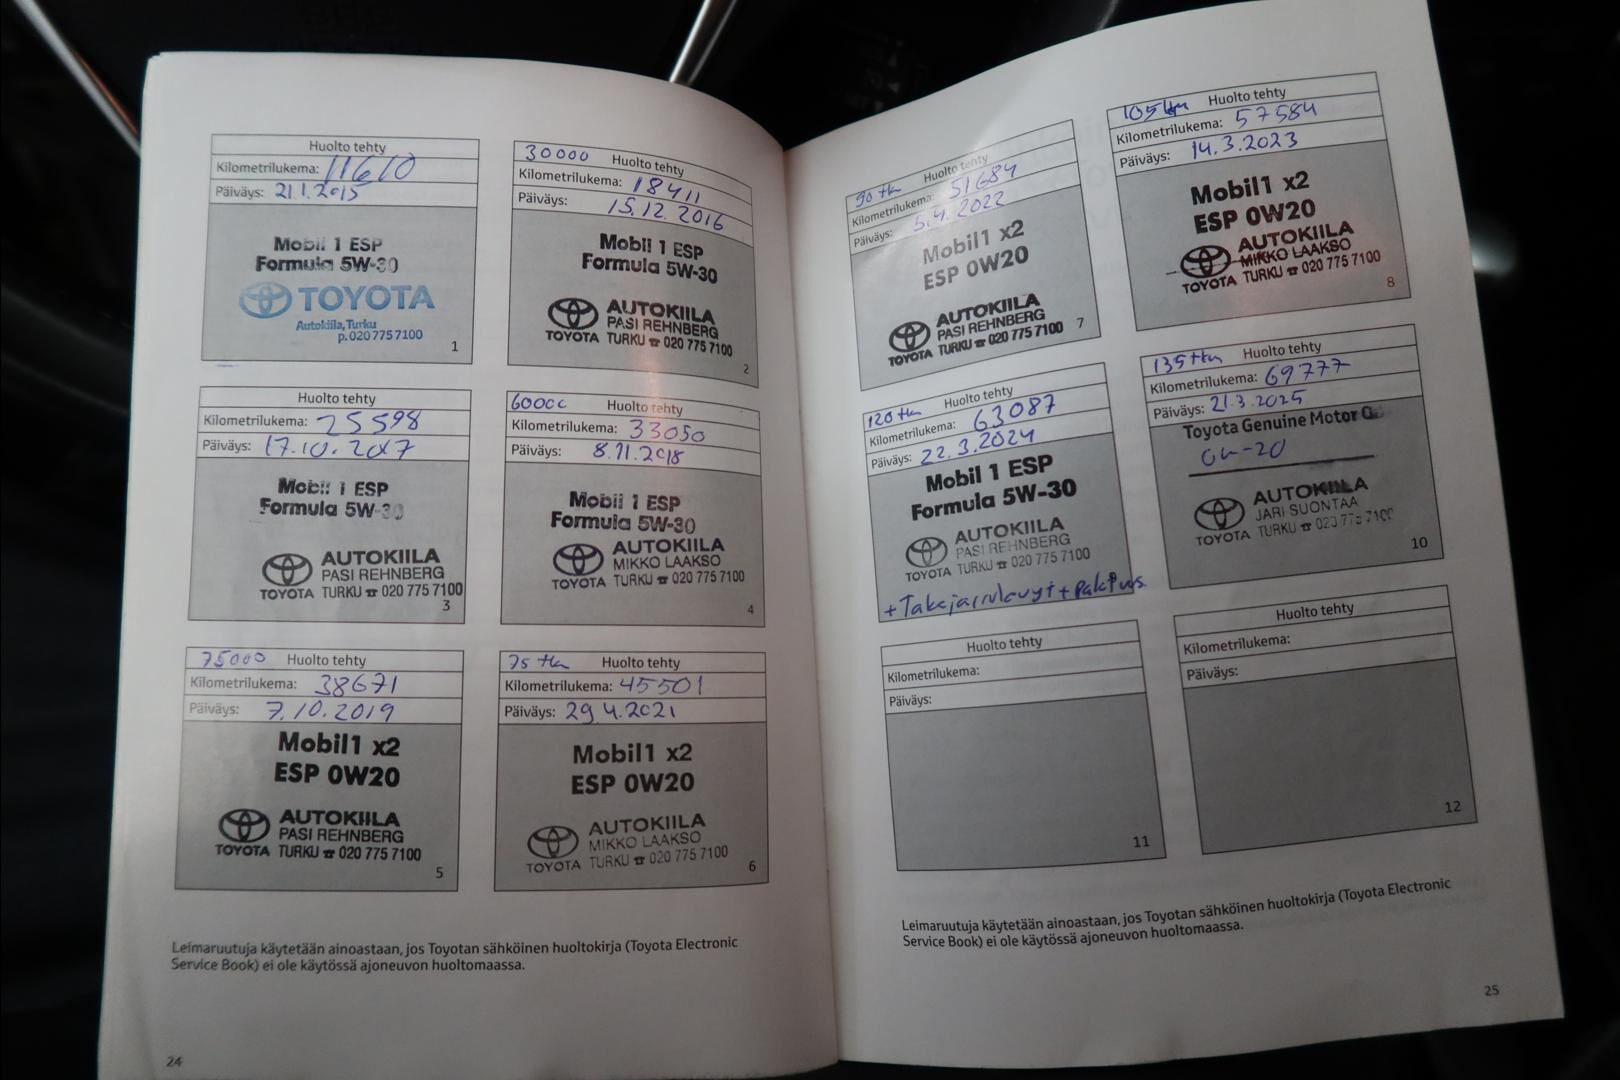 Huolto tehty
Kilometrilukema: 11610
Päiväys: 21.1.2015
Mobil 1 ESP
Formula 5W-30
TOYOTA
Autokiila, Turku
p. 020 775 7100
1
30000 Huolto tehty
Kilometrilukema: 18411
Päiväys: 15.12.2016
Mobil 1 ESP
Formula 5W-30
AUTOKIILA
PASI REHNBERG
TOYOTA TURKU ☎ 020 775 7100
2
Huolto tehty
Kilometrilukema: 25598
Päiväys: 17.10.2017
Mobil 1 ESP
Formula 5W-30
AUTOKIILA
PASI REHNBERG
TOYOTA TURKU ☎ 020 775 7100
3
60000 Huolto tehty
Kilometrilukema: 33050
Päiväys: 8.11.2018
Mobil 1 ESP
Formula 5W-30
AUTOKIILA
MIKKO LAAKSO
TOYOTA TURKU ☎ 020 775 7100
4
75000 Huolto tehty
Kilometrilukema: 38671
Päiväys: 7.10.2019
Mobil1 x2
ESP 0W20
AUTOKIILA
PASI REHNBERG
TOYOTA TURKU ☎ 020 775 7100
5
75 tkm Huolto tehty
Kilometrilukema: 45501
Päiväys: 29.4.2021
Mobil1 x2
ESP 0W20
AUTOKIILA
MIKKO LAAKSO
TOYOTA TURKU ☎ 020 775 7100
6
Leimaruutuja käytetään ainoastaan, jos Toyotan sähköinen huoltokirja (Toyota Electronic
Service Book) ei ole käytössä ajoneuvon huoltomaassa.
24
90 tkm Huolto tehty
Kilometrilukema: 51684
Päiväys: 5.4.2022
Mobil1 x2
ESP 0W20
AUTOKIILA
PASI REHNBERG
TOYOTA TURKU ☎ 020 775 7100
7
105 tkm Huolto tehty
Kilometrilukema: 57584
Päiväys: 14.3.2023
Mobil1 x2
ESP 0W20
AUTOKIILA
MIKKO LAAKSO
TOYOTA TURKU ☎ 020 775 7100
8
120 tkm Huolto tehty
Kilometrilukema: 63087
Päiväys: 22.3.2024
Mobil 1 ESP
Formula 5W-30
AUTOKIILA
PASI REHNBERG
TOYOTA TURKU ☎ 020 775 7100
+Takajarrulevyt+
135 tkm Huolto tehty
Kilometrilukema: 69777
Päiväys: 21.3.2025
Toyota Genuine Motor
0W-20
AUTOKIILA
JARI SUONTAA
TOYOTA TURKU ☎ 020 775 7100
10
Huolto tehty
Kilometrilukema:
Päiväys:
11
Huolto tehty
Kilometrilukema:
Päiväys:
12
Leimaruutuja käytetään ainoastaan, jos Toyotan sähköinen huoltokirja (Toyota Electronic
Service Book) ei ole käytössä ajoneuvon huoltomaassa.
25